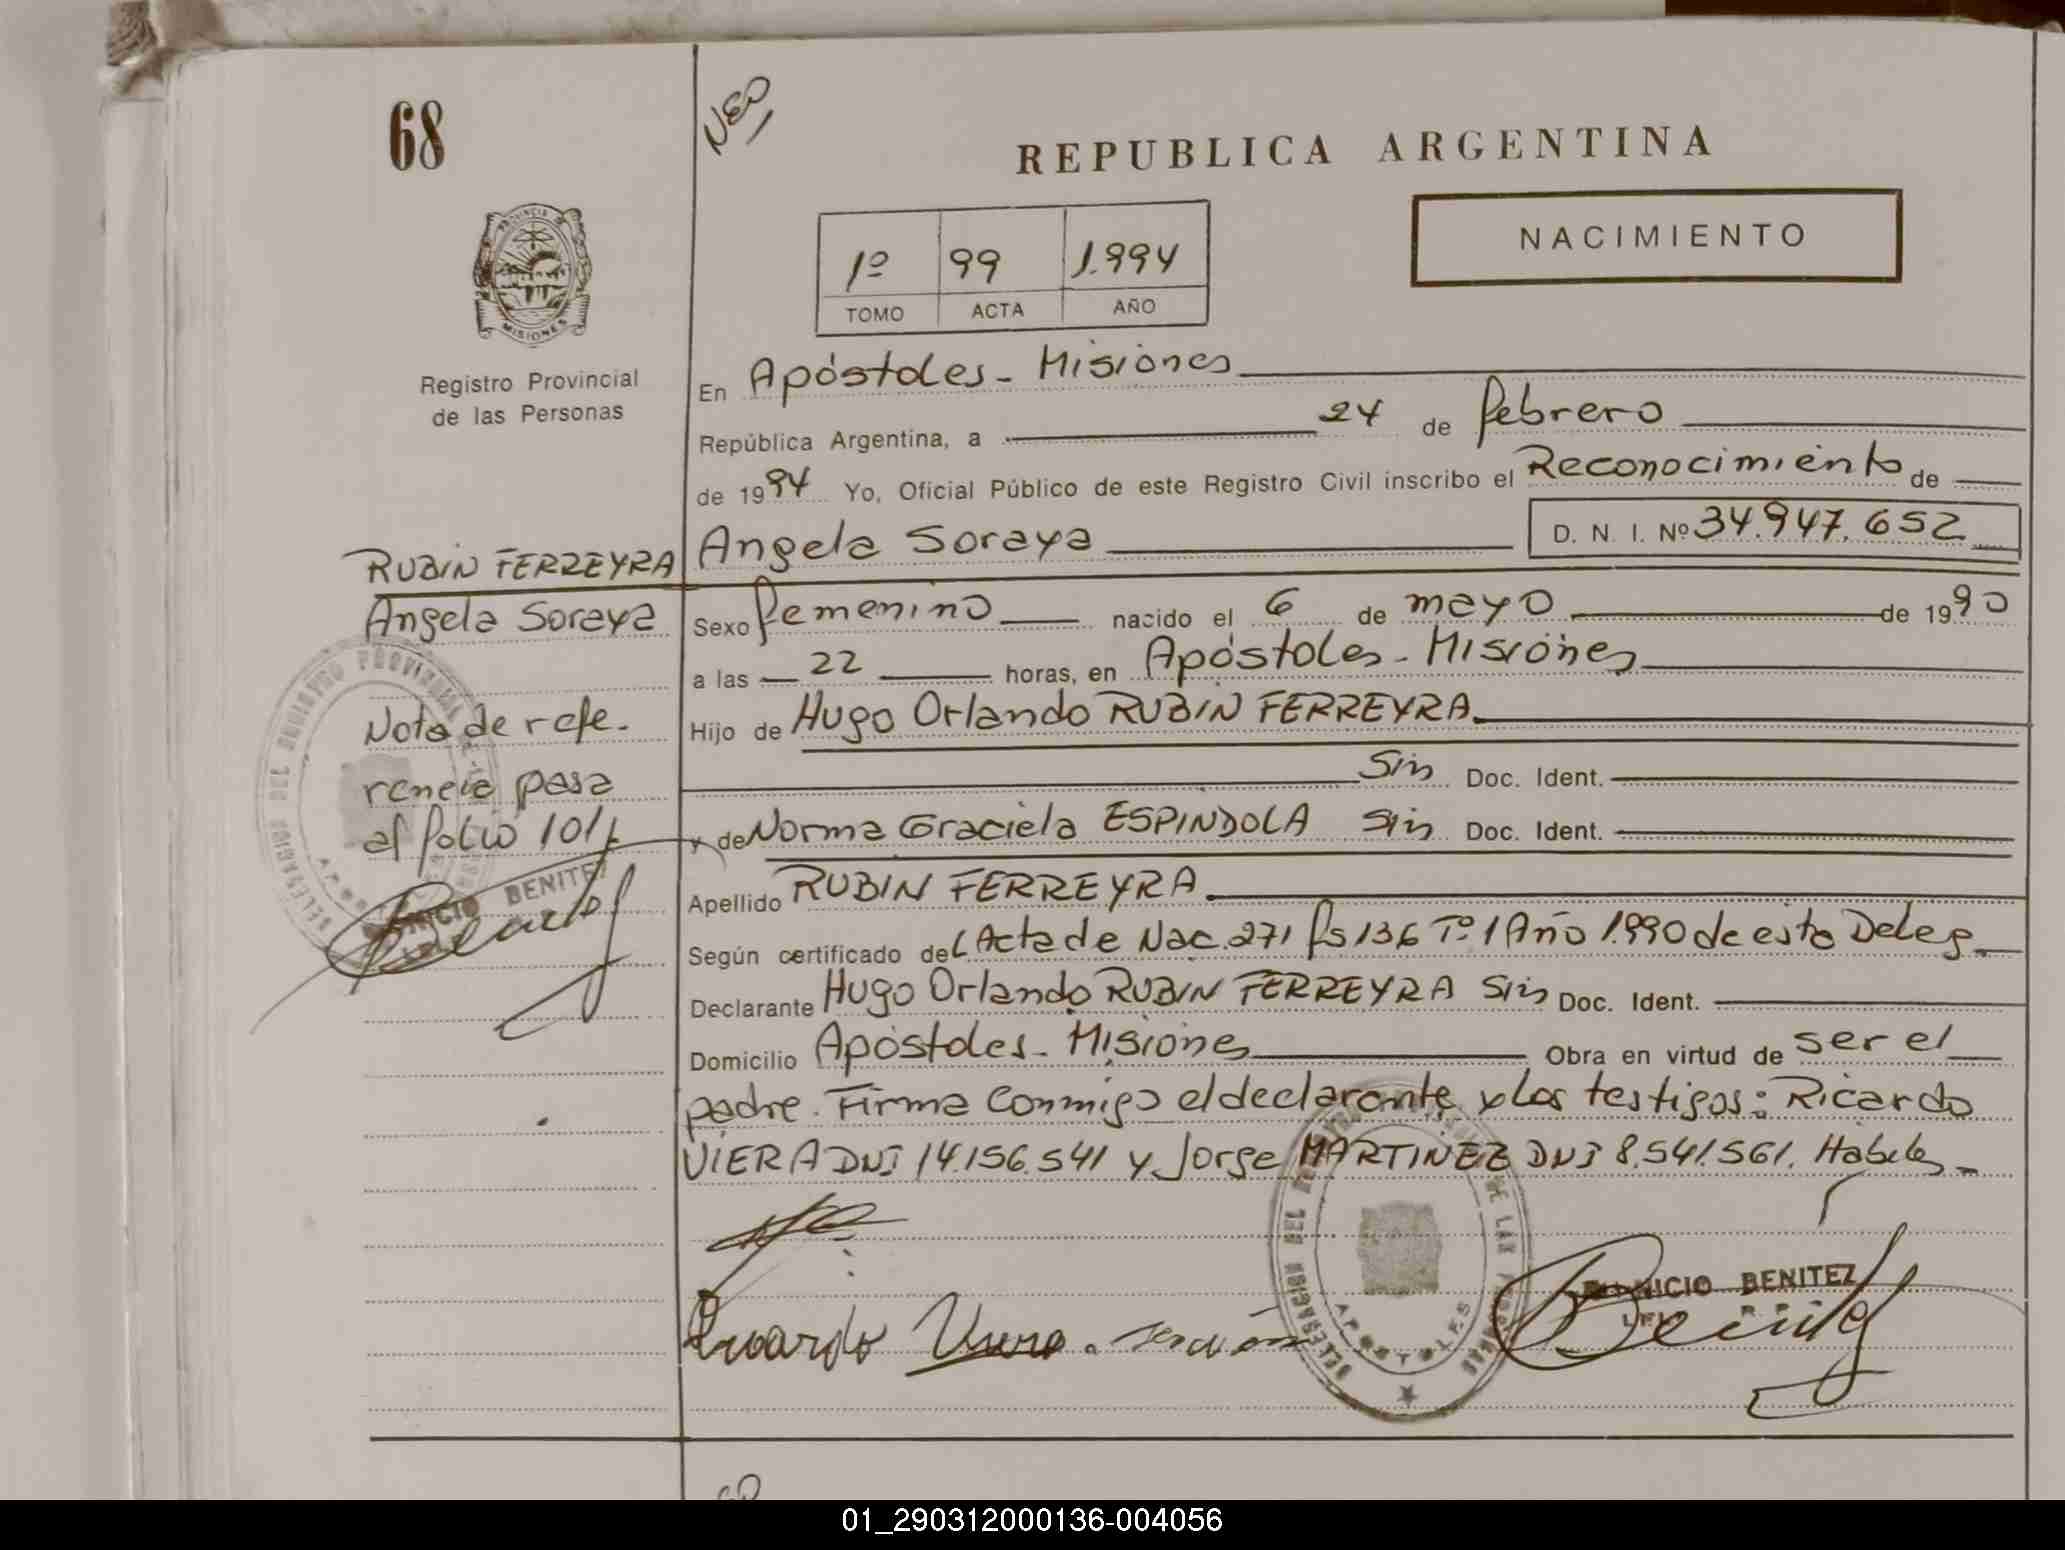 68
NEO
REPUBLICA ARGENTINA
PROVINCIA
MISIONES
1º 99 1.994
TOMO ACTA AÑO
NACIMIENTO
Registro Provincial
de las Personas
En Apóstoles - Misiones
República Argentina, a 24 de febrero
de 1994 Yo, Oficial Público de este Registro Civil inscribo el Reconocimiento de
Angela Soraya D. N. I. Nº 34.947.652
RUBIN FERREYRA
Angela Soraya
Nota de refe-
rencia pasa
al folio 101
BENITEZ
Sexo femenino nacido el 6 de mayo de 1990
a las 22 horas, en Apóstoles - Misiones
Hijo de Hugo Orlando RUBIN FERREYRA
Sin Doc. Ident.
y de Norma Graciela ESPINDOLA Sin Doc. Ident.
Apellido RUBIN FERREYRA
Según certificado del Acta de Nac. 271 fs 136 Tº 1 Año 1.990 de esta Deleg.
Declarante Hugo Orlando RUBIN FERREYRA Sin Doc. Ident.
Domicilio Apóstoles - Misiones Obra en virtud de ser el
padre. Firma conmigo el declarante y los testigos: Ricardo
VIERA DNI 14.156.541 y Jorge MARTINEZ DNI 8.541.561. Hábiles
DELEGACION DEL
DE LAS
APOSTOLES
BENITEZ
Ricardo Viera
01_290312000136-004056